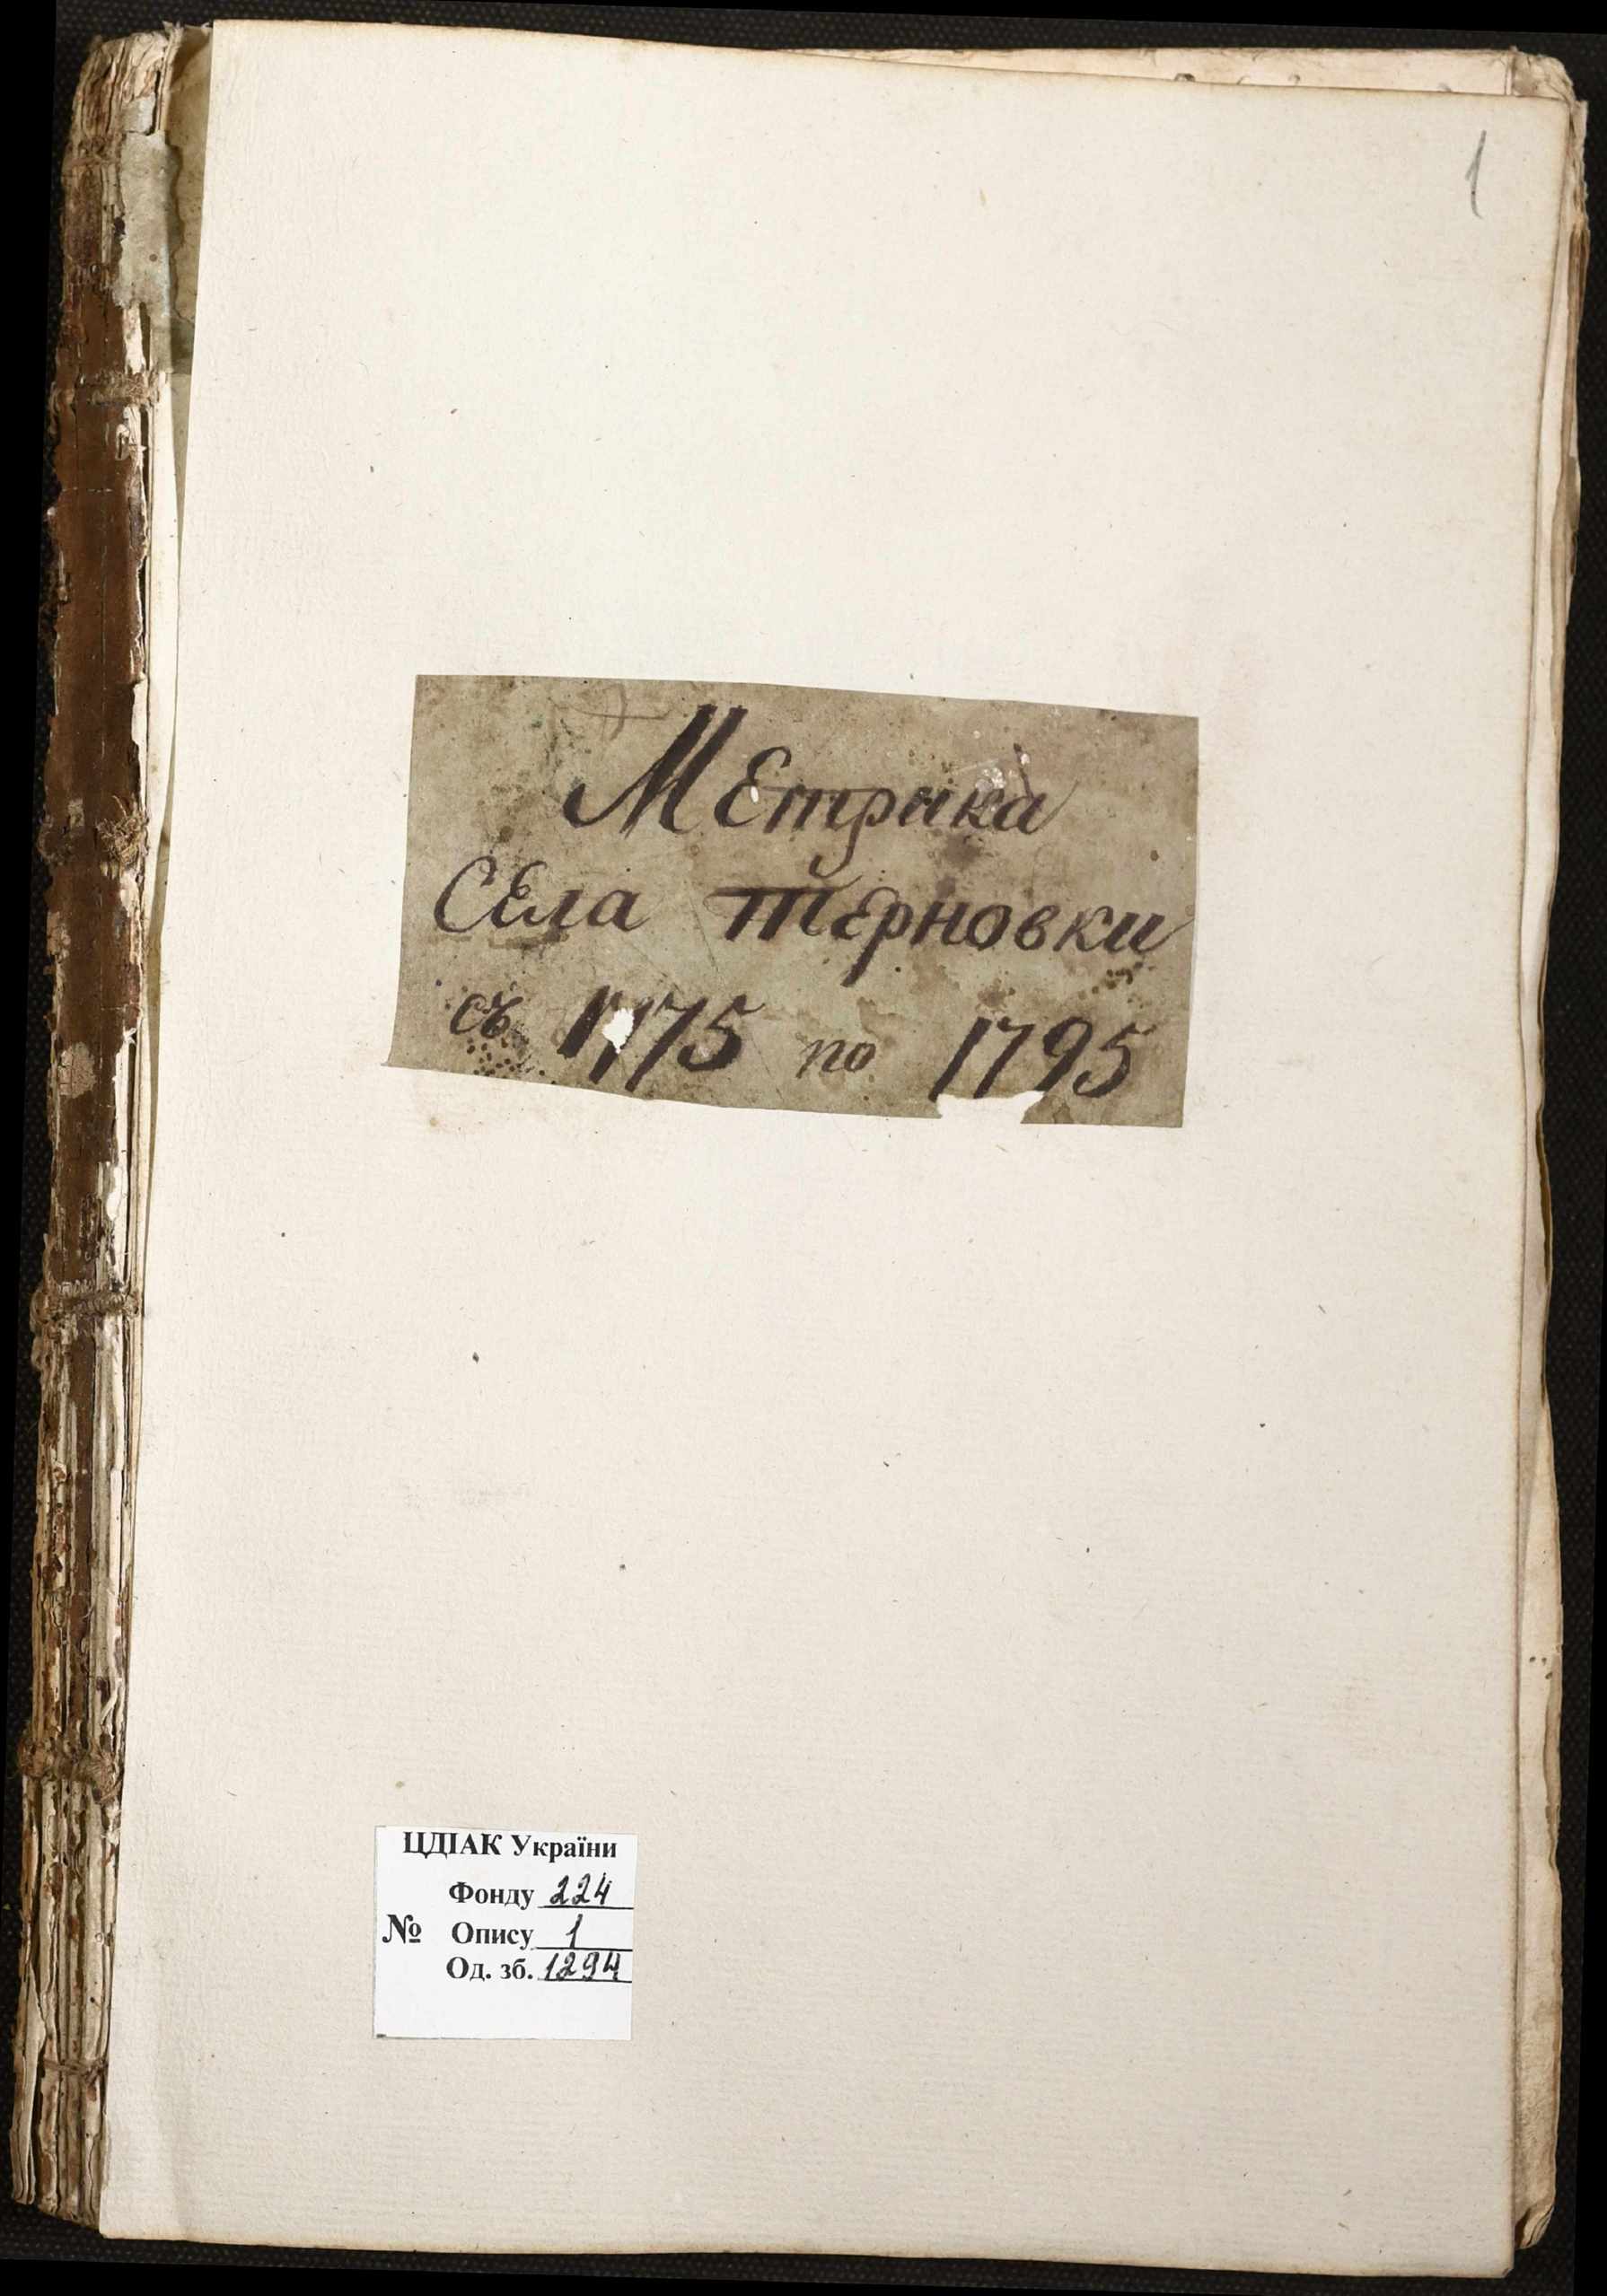 1
МЕтрика
СЕла тЕрновки
съ 1775 по 1795
ЦДІАК України
Фонду 224
№ Опису 1
Од. зб. 1294